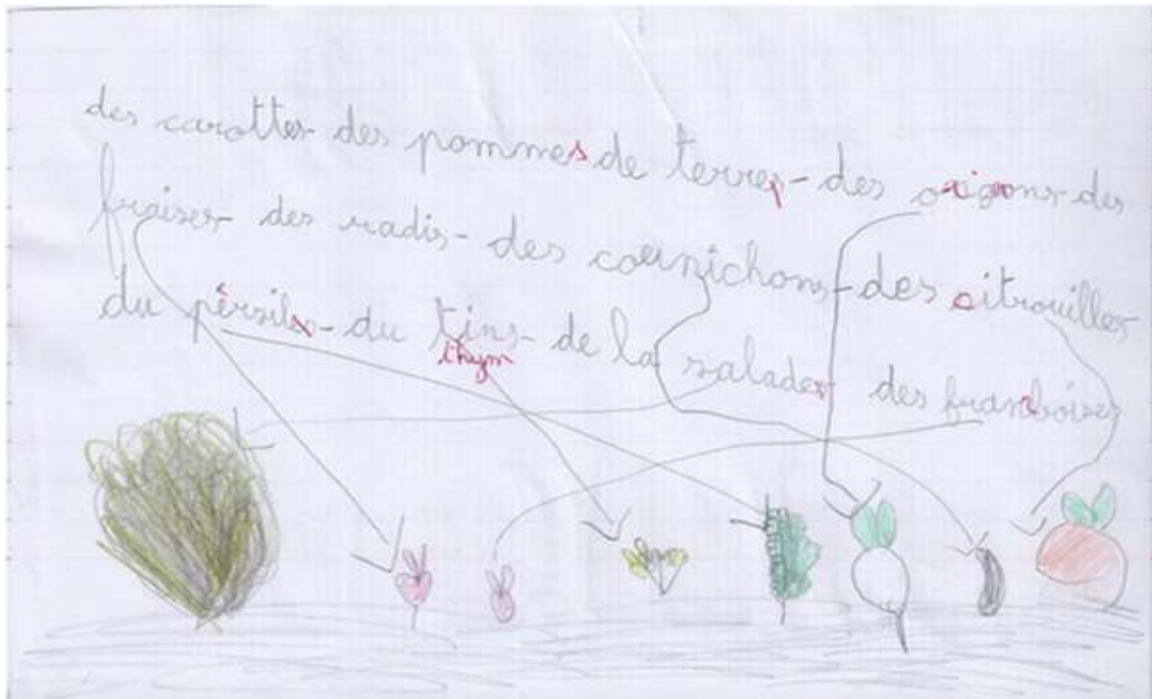 des carottes - des pommes de terres - des oignons - des
fraises - des radis - des cornichons - des citrouilles
du persils - du tins - de la salades des framboises
thym